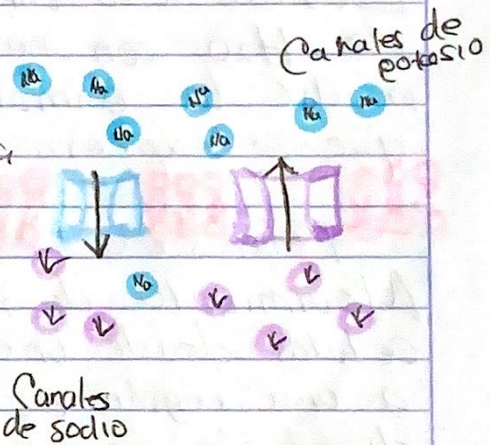 Canales de
potasio
Na
Na
Na
Na
Na
Na
Na
Na
K
K
K
K
K
K
K
Canales
de sodio